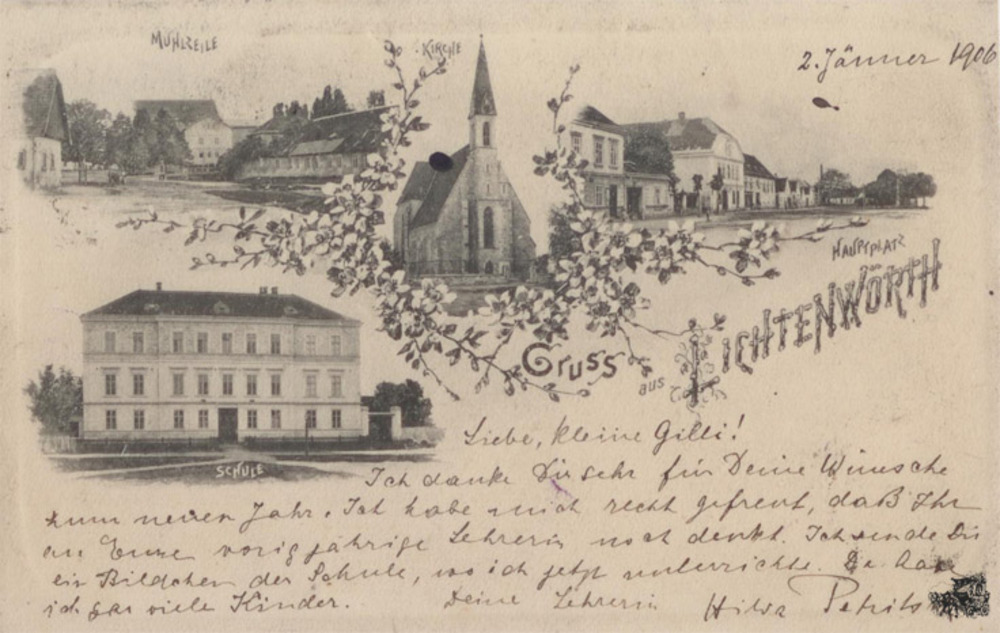 MÜHLZEILE
KIRCHE
2. Jänner 1906
HAUPTPLATZ
GRUSS aus LICHTENWÖRTH
SCHULE
Liebe, kleine Gilli!
Ich danke Dir sehr für Deine Wünsche
zum neuen Jahr. Ich habe mich recht gefreut, daß Ihr
an Eure vorigjährige Lehrerin noch denkt. Ich sende Dir
ein Bildchen der Schule, wo ich jetzt unterrichte. Da habe
ich gar viele Kinder. Deine Lehrerin Hilda